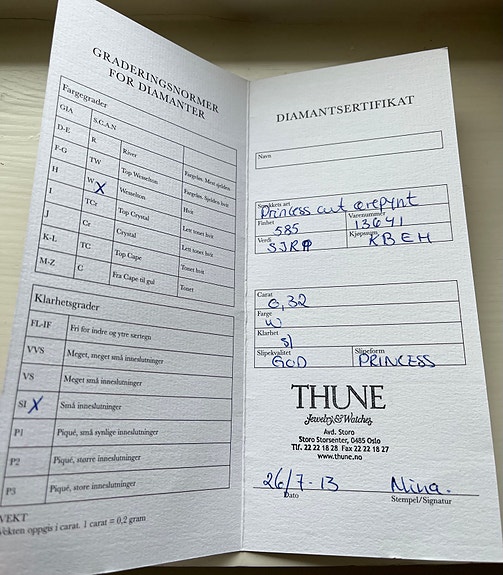 GRADERINGSNORMER
FOR DIAMANTER
Fargegrader
GIA S.C.A.N
D-E R River Fargeløs. Mest sjelden
F-G TW Top Wesselton Fargeløs. Sjelden hvit
H W X Wesselton Hvit
I TCr Top Crystal Lett tonet hvit
J Cr Crystal Lett tonet hvit
K-L TC Top Cape Tonet hvit
M-Z C Fra Cape til gul Tonet
Klarhetsgrader
FL-IF Fri for indre og ytre særtegn
VVS Meget, meget små inneslutninger
VS Meget små inneslutninger
SI X Små inneslutninger
P1 Piqué, små synlige inneslutninger
P2 Piqué, større inneslutninger
P3 Piqué, store inneslutninger
VEKT
Vekten oppgis i carat. 1 carat = 0,2 gram
DIAMANTSERTIFIKAT
Navn
Smykkets art
Princess cut ørepynt
Finhet Varenummer
585 13641
Verdi Kjøpesum
KBEH
Carat
0,32
Farge
W
Klarhet
SI
Slipekvalitet Slipeform
GOD PRINCESS
THUNE
Jewelry & Watches
Avd. Storo
Storo Storsenter, 0485 Oslo
Tlf. 22 22 18 28 Fax 22 22 18 27
www.thune.no
26/7-13 Nina.
Dato Stempel/Signatur